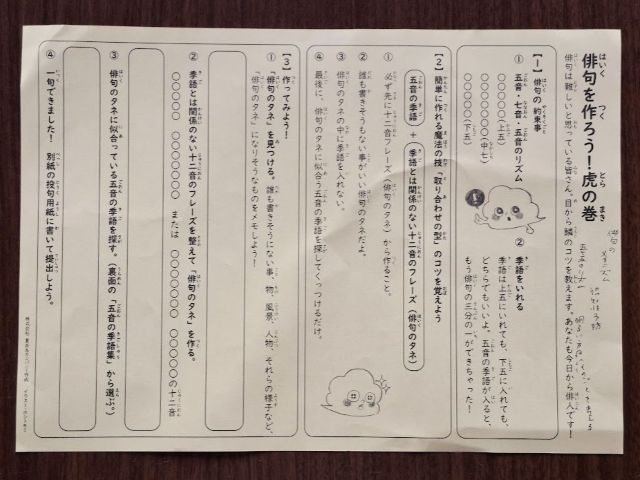 俳句を作ろう！虎の巻
俳句は難しいと思っている皆さん。目から鱗のコツを教えます。あなたも今日から俳人です！
【1】俳句の約束事
① 五音・七音・五音のリズム
○○○○○（上五）
○○○○○○○（中七）
○○○○○（下五）
② 季語をいれる
季語は上五にいれても、下五に入れても、
どちらでもいいよ。五音の季語が入ると、
もう俳句の三分の一ができちゃった！
【2】簡単に作れる魔法の技「取り合わせの型」のコツを覚えよう
五音の季語 + 季語とは関係のない十二音のフレーズ（俳句のタネ）
① 必ず先に十二音フレーズ（俳句のタネ）から作ること。
② 誰も書きそうもない事がいい俳句のタネだよ。
③ 俳句のタネの中に季語を入れない。
④ 最後に、俳句のタネに似合う五音の季語を探してくっつけるだけ。
【3】作ってみよう！
① 「俳句のタネ」を見つける。誰も書きそうにない事、物、風景、人物、それらの様子など、
「俳句のタネ」になりそうなものをメモしよう！
② 季語とは関係のない十二音のフレーズを整えて「俳句のタネ」を作る。
○○○○○ ○○○○○○○ または ○○○○○○○ ○○○○○の十二音
③ 俳句のタネに似合っている五音の季語を探す。（裏面の「五音の季語集」から選ぶ。）
④ 一句できました！ 別紙の投句用紙に書いて提出しよう。